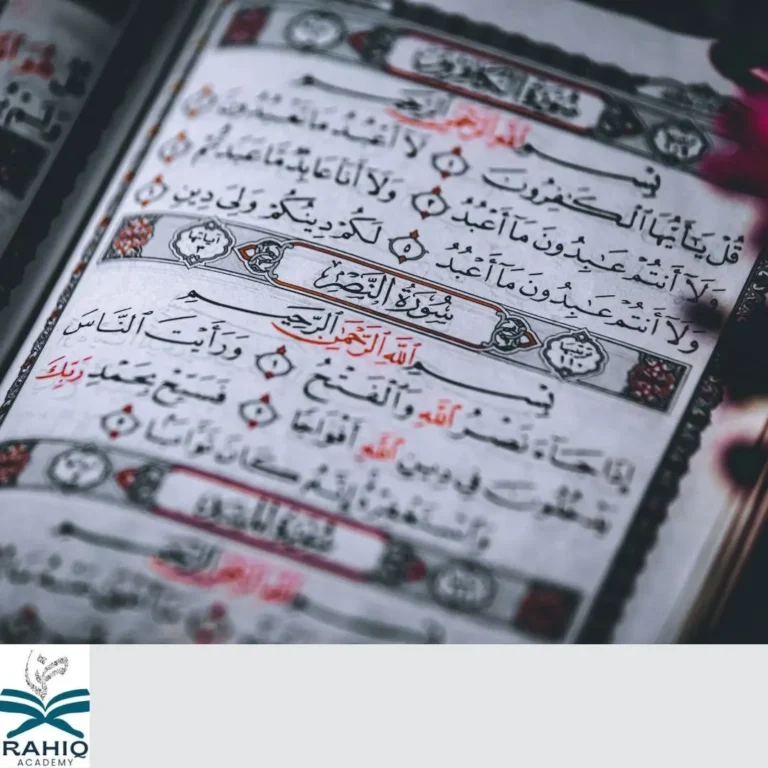 سُورَةُ الْكَافِرُونَ
بِسْمِ اللَّهِ الرَّحْمَٰنِ الرَّحِيمِ
قُلْ يَٰٓأَيُّهَا ٱلْكَٰفِرُونَ ١ لَآ أَعْبُدُ مَا تَعْبُدُونَ ٢
وَلَآ أَنتُمْ عَٰبِدُونَ مَآ أَعْبُدُ ٣ وَلَآ أَنَا۠ عَابِدٌ مَّا عَبَدتُّمْ ٤
وَلَآ أَنتُمْ عَٰبِدُونَ مَآ أَعْبُدُ ٥ لَكُمْ دِينُكُمْ وَلِىَ دِينِ ٦
سُورَةُ النَّصْرِ
بِسْمِ اللَّهِ الرَّحْمَٰنِ الرَّحِيمِ
إِذَا جَآءَ نَصْرُ ٱللَّهِ وَٱلْفَتْحُ ١ وَرَأَيْتَ ٱلنَّاسَ
يَدْخُلُونَ فِى دِينِ ٱللَّهِ أَفْوَاجًا ٢ فَسَبِّحْ بِحَمْدِ رَبِّكَ
وَٱسْتَغْفِرْهُ إِنَّهُۥ كَانَ تَوَّابًۢا ٣
بِسْمِ اللَّهِ الرَّحْمَٰنِ الرَّحِيمِ
RAHIQ
ACADEMY